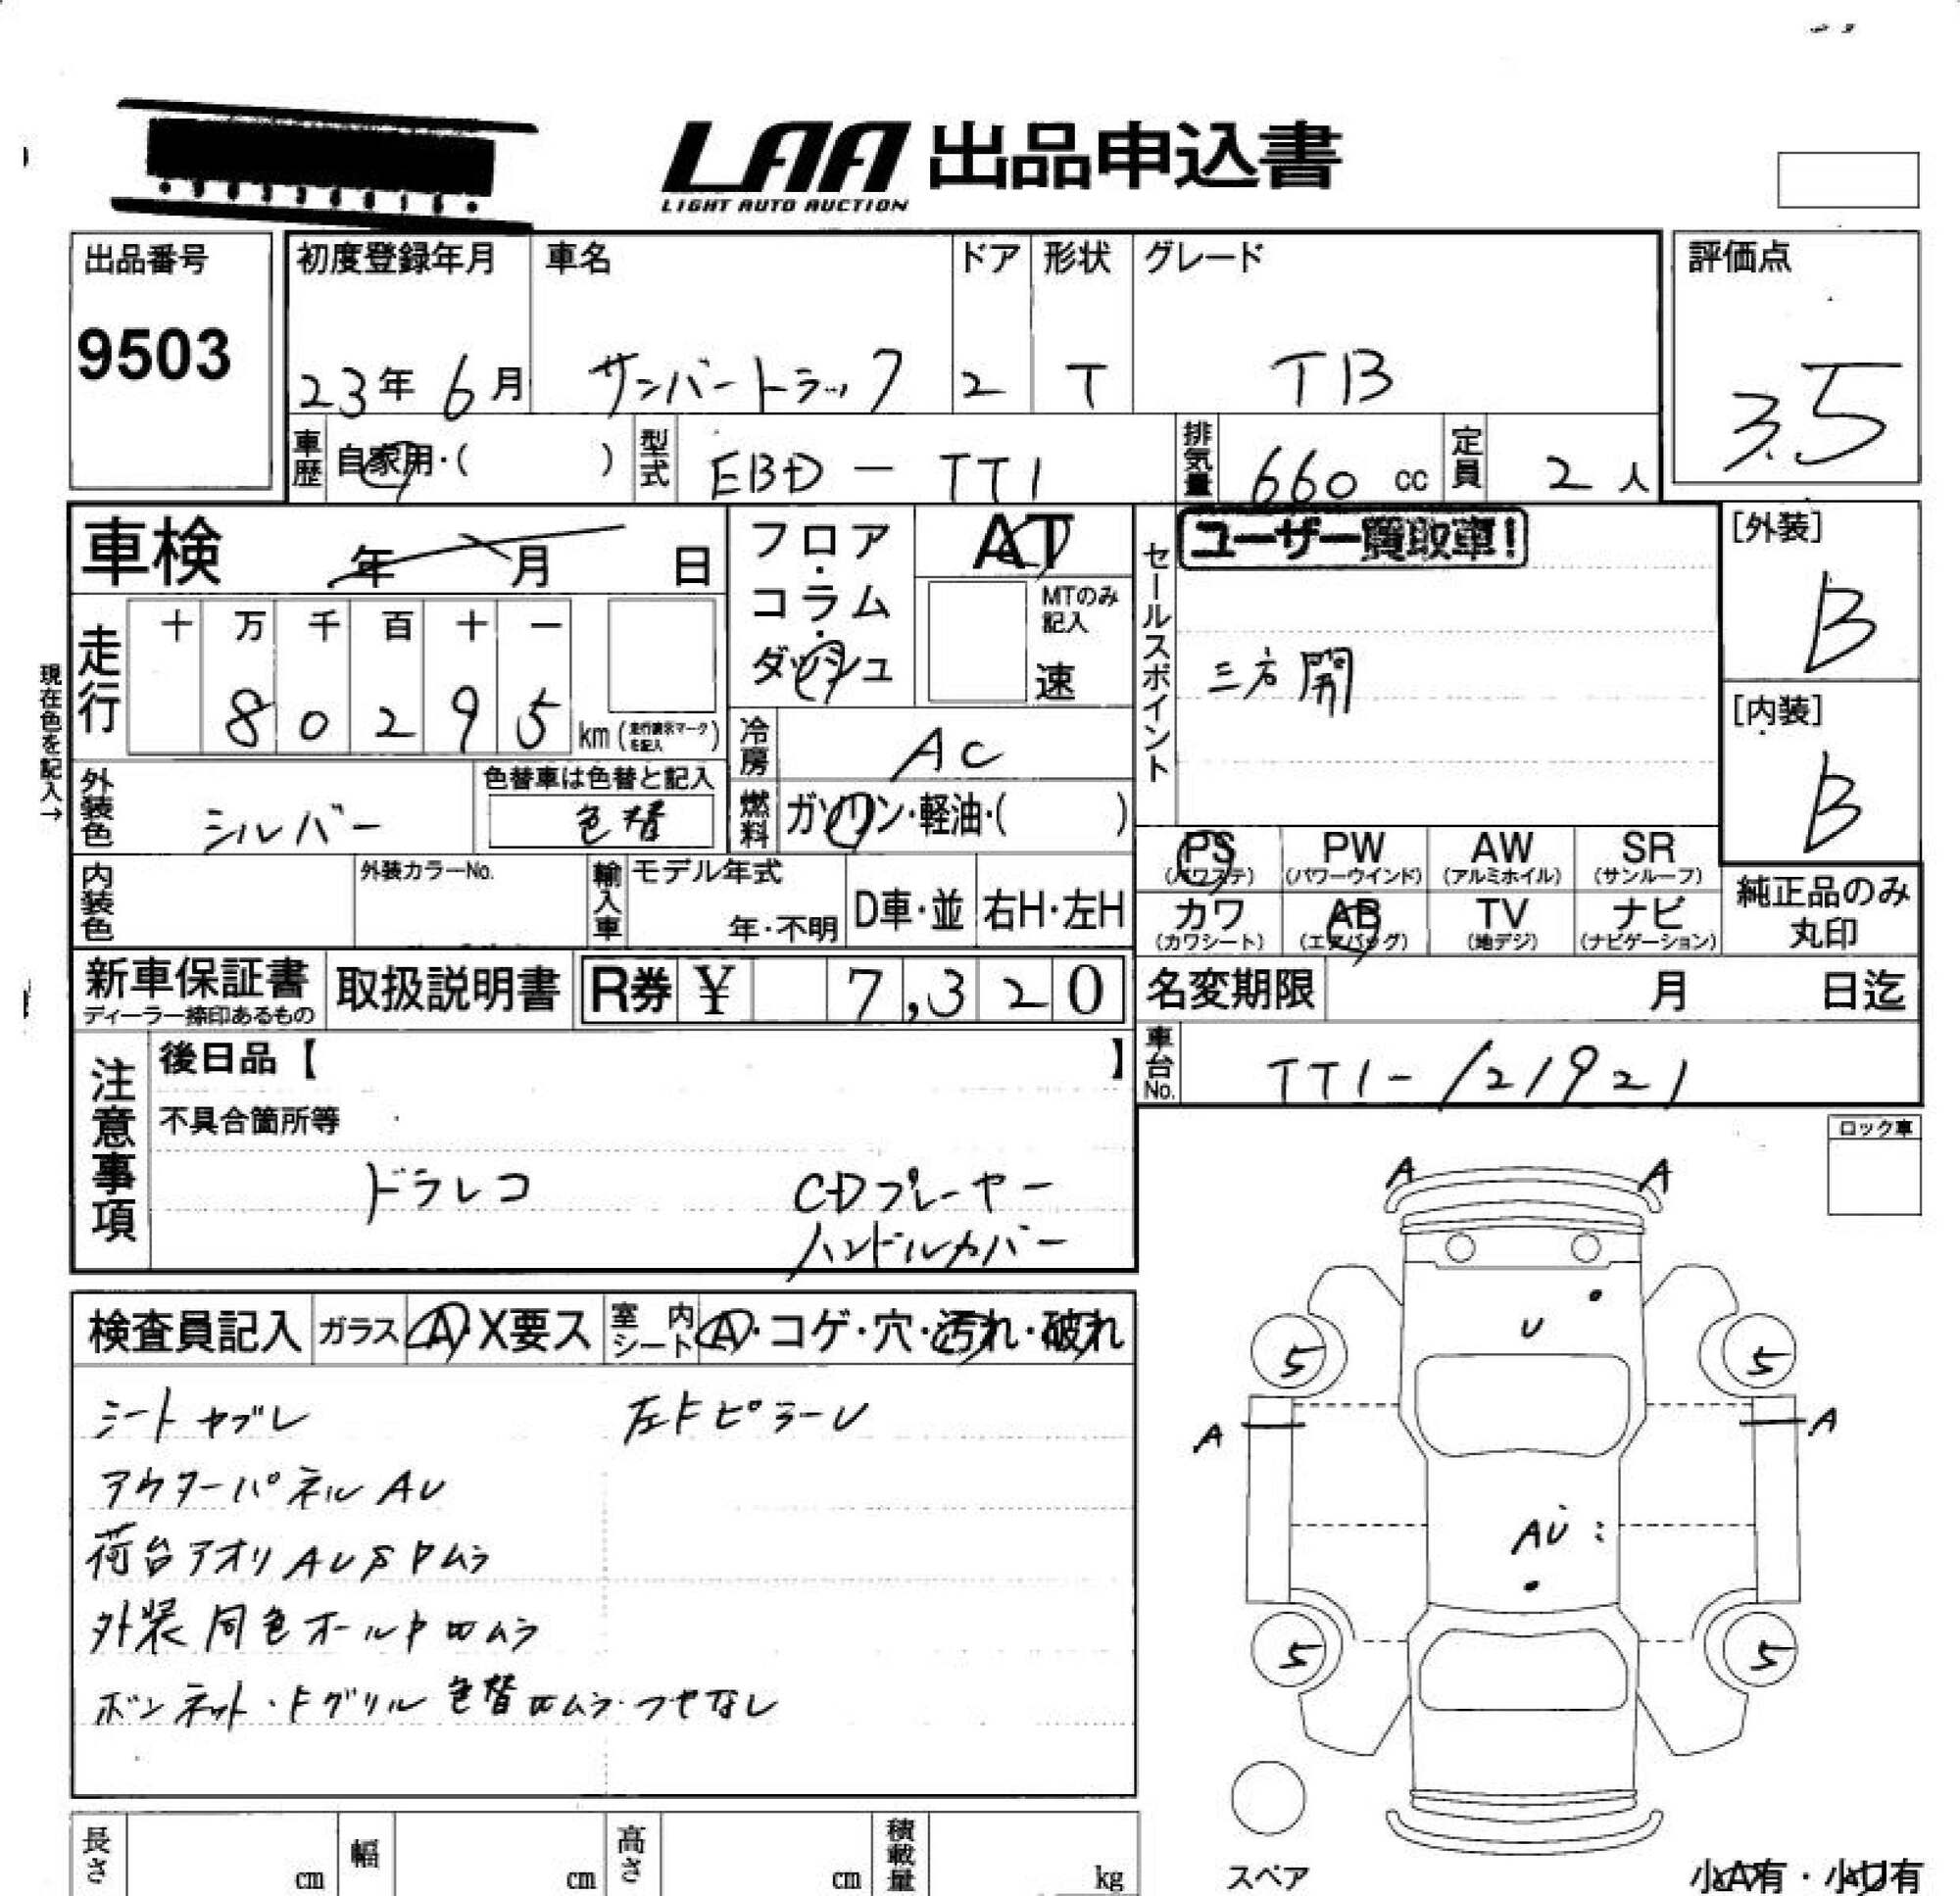 LAA 出品申込書
LIGHT AUTO AUCTION
出品番号
9503
初度登録年月 車名 ドア 形状 グレード
23年 6月 サンバートラック 2 T TB
評価点
3.5
車歴 自家用・( ) 型式 EBD-TT1 排気量 660 cc 定員 2人
車検 年 月 日
フロア・コラム・ダッシュ
AT
MTのみ記入
速
セールスポイント
ユーザー買取車!
三方開
[外装]
B
[内装]
B
現在色を記入→
走行 十 万 千 百 十 一
8 0 2 9 5 km (走行表示マークを記入)
冷房 AC
外装色 シルバー
色替車は色替と記入
色替
燃料 ガソリン・軽油・( )
PS (パワステ) PW (パワーウインド) AW (アルミホイル) SR (サンルーフ)
カワ (カワシート) AB (エアバッグ) TV (地デジ) ナビ (ナビゲーション)
純正品のみ丸印
内装色 外装カラーNo. 輸入車 モデル年式 年・不明 D車・並 右H・左H
新車保証書 ディーラー捺印あるもの 取扱説明書 R券 ¥ 7,320
名変期限 月 日迄
車台No. TT1-121921
注意事項
後日品【 】
不具合箇所等
ドラレコ CDプレーヤー
ハンドルカバー
ロック車
検査員記入 ガラス A・X要ス 室内シート A・コゲ・穴・汚れ・破れ
シートヤブレ 左FピラーU
アウターパネルAU
荷台アオリAUSPムラ
外装同色オールPムラ
ボンネット・Fグリル色替ムラ・ツヤなし
A A
U
5 5
A A
AU
5 5
スペア
小A有・小U有
長さ cm 幅 cm 高さ cm 積載量 kg